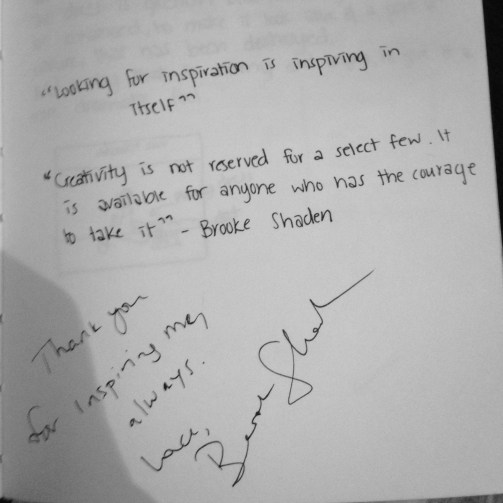 "Looking for inspiration is inspiring in
itself"
"Creativity is not reserved for a select few. It
is available for anyone who has the courage
to take it" - Brooke Shaden
Thank you
for inspiring me,
always.
Love,